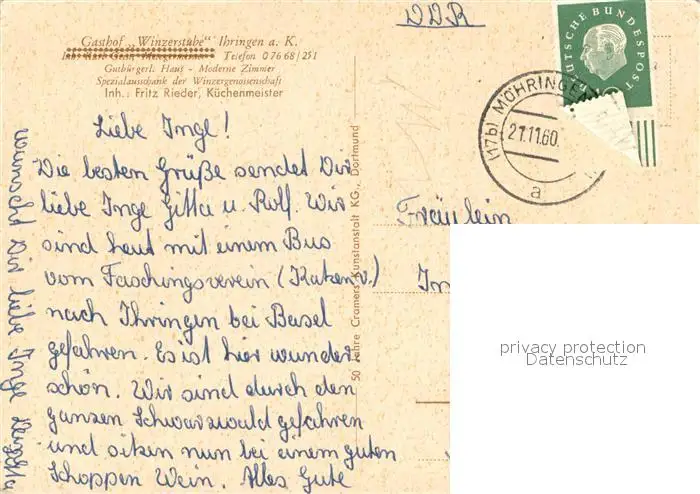 Gasthof „Winzerstube" Ihringen a. K.
Telefon 07668/251
Gutbürgerl. Haus - Moderne Zimmer
Spezialausschank der Winzergenossenschaft
Inh.: Fritz Rieder, Küchenmeister
Liebe Inge!
Die besten Grüße sendet Dir
liebe Inge Gitta u. Rolf. Wir
sind heut mit einem Bus
vom Faschingsverein (Katzenv.)
nach Ihringen bei Basel
gefahren. Es ist hier wunder
schön. Wir sind durch den
ganzen Schwarzwald gefahren
und sitzen nun bei einem guten
Schoppen Wein. Alles Gute
wünscht Dir liebe Inge
50 Jahre Cramers Kunstanstalt KG., Dortmund
DDR
DEUTSCHE BUNDESPOST
(17b) MÖHRINGEN
21.11.60.
a
Fräulein
In
privacy protection
Datenschutz